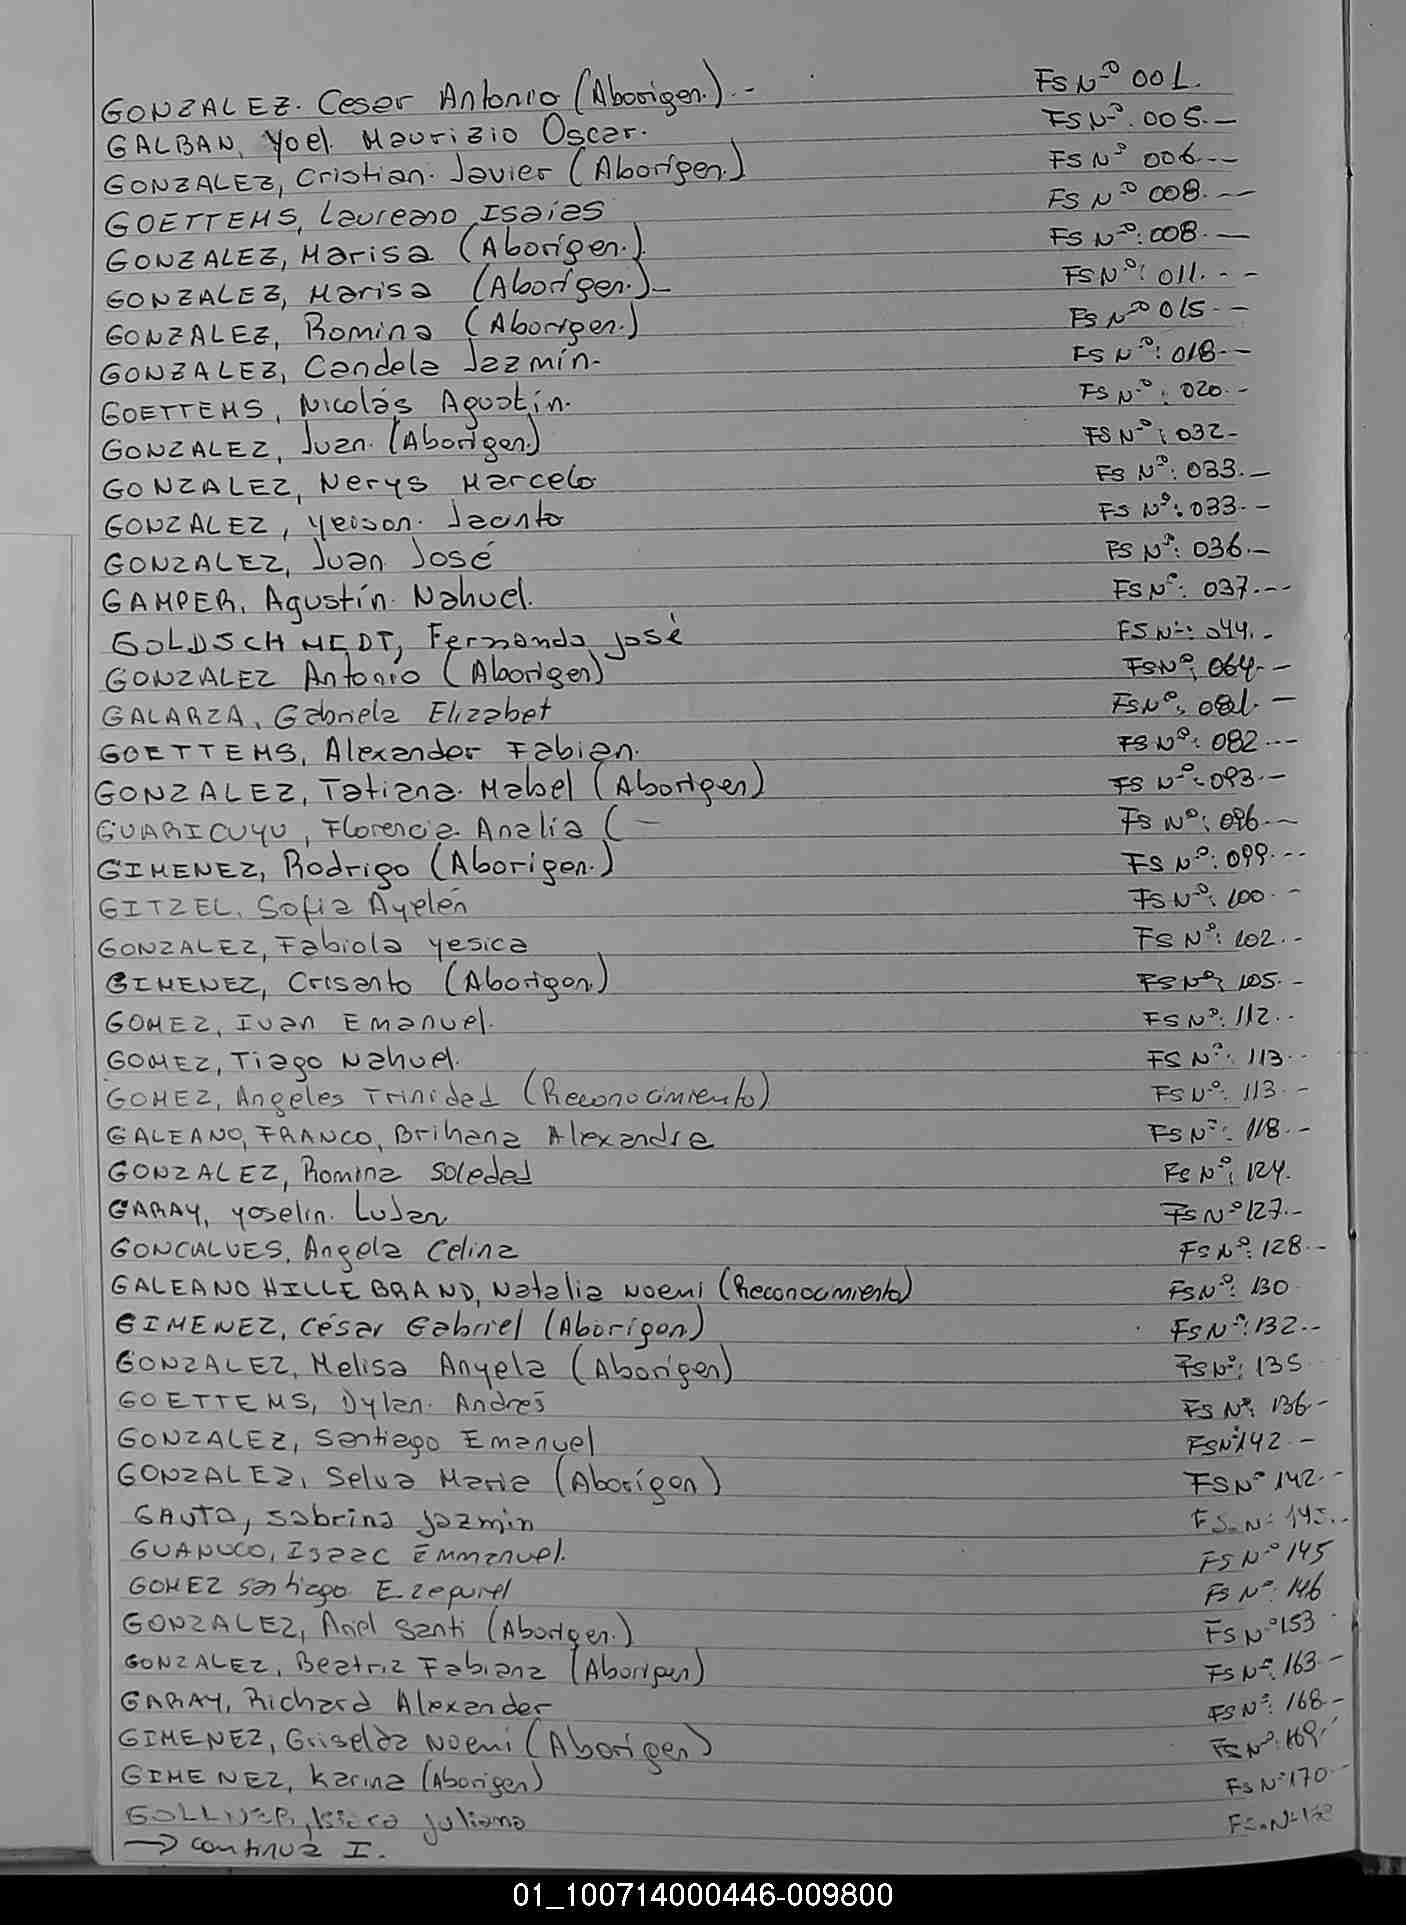 GONZALEZ. Cesar Antonio (Aborigen.) .- FS Nº 001.
GALBAN, Yoel Maurizio Oscar. FS Nº. 005.-
GONZALEZ, Cristian. Javier (Aborigen.) FS Nº 006.--
GOETTEMS, Laureano Isaias FS Nº 008.--
GONZALEZ, Marisa (Aborigen.). FS Nº: 008.-
GONZALEZ, Marisa (Aborigen.)- FS Nº: 011.--
GONZALEZ, Romina (Aborigen.) FS Nº 015.-
GONZALEZ, Candela Jazmín. FS Nº: 018.-
GOETTEMS, Nicolás Agustín. FS Nº: 020.-
GONZALEZ, Juan. (Aborigen.) FS Nº: 032-
GONZALEZ, Nerys Marcelo FS Nº: 033.-
GONZALEZ, Yeison. Jacinto FS Nº: 033.-
GONZALEZ, Juan José FS Nº: 036.-
GAMPER, Agustín. Nahuel. FS Nº: 037.--
GOLDSCHMEDT, Fernando José FS Nº: 044.-
GONZALEZ Antonio (Aborigen) FS Nº: 064.-
GALARZA, Gabriela Elizabet FS Nº: 081. -
GOETTEMS, Alexander Fabian. FS Nº: 082.--
GONZALEZ, Tatiana. Mabel (Aborigen) FS Nº: 093.-
GUARICUYU, Florencia. Analía ( - FS Nº: 096.-
GIMENEZ, Rodrigo (Aborigen.) FS Nº: 099.--
GITZEL, Sofia Ayelén FS Nº: 100.-
GONZALEZ, Fabiola Yesica FS Nº: 102.-
GIMENEZ, Crisanto (Aborigen) FS Nº: 105.-
GOMEZ, Ivan Emanuel. FS Nº: 112.-
GOMEZ, Tiago Nahuel. FS Nº: 113.-
GOMEZ, Angeles Trinidad (Reconocimiento) FS Nº: 113.-
GALEANO, FRANCO, Brihana Alexandra FS Nº: 118.-
GONZALEZ, Romina Soledad FS Nº: 124.
GARAY, Yoselin. Lujan FS Nº 127.-
GONCALVES, Angela Celina FS Nº: 128.-
GALEANO HILLEBRAND, Natalia Noemi (Reconocimiento) FS Nº: 130
GIMENEZ, César Gabriel (Aborigen) FS Nº: 132.-
GONZALEZ, Melisa Anyela (Aborigen) FS Nº: 135
GOETTEMS, Dylan. Andrés FS Nº: 136-
GONZALEZ, Santiago Emanuel FS Nº 142.-
GONZALEZ, Selva Maria (Aborigen) FS Nº 142.-
GAUTO, Sabrina Jazmin FS. Nº
GUANUCO, Isaac Emmanuel. FS Nº 145
GOMEZ Santiago Ezequiel FS Nº: 146
GONZALEZ, Ariel Santi (Aborigen.) FS Nº 153
GONZALEZ, Beatriz Fabiana (Aborigen) FS Nº: 163.-
GARAY, Richard Alexander FS Nº: 168.-
GIMENEZ, Griselda Noemi (Aborigen) FS Nº: 169.
GIMENEZ, Karina (Aborigen) FS Nº 170.-
Juliana FS. Nº
→ continua I.
01_100714000446-009800